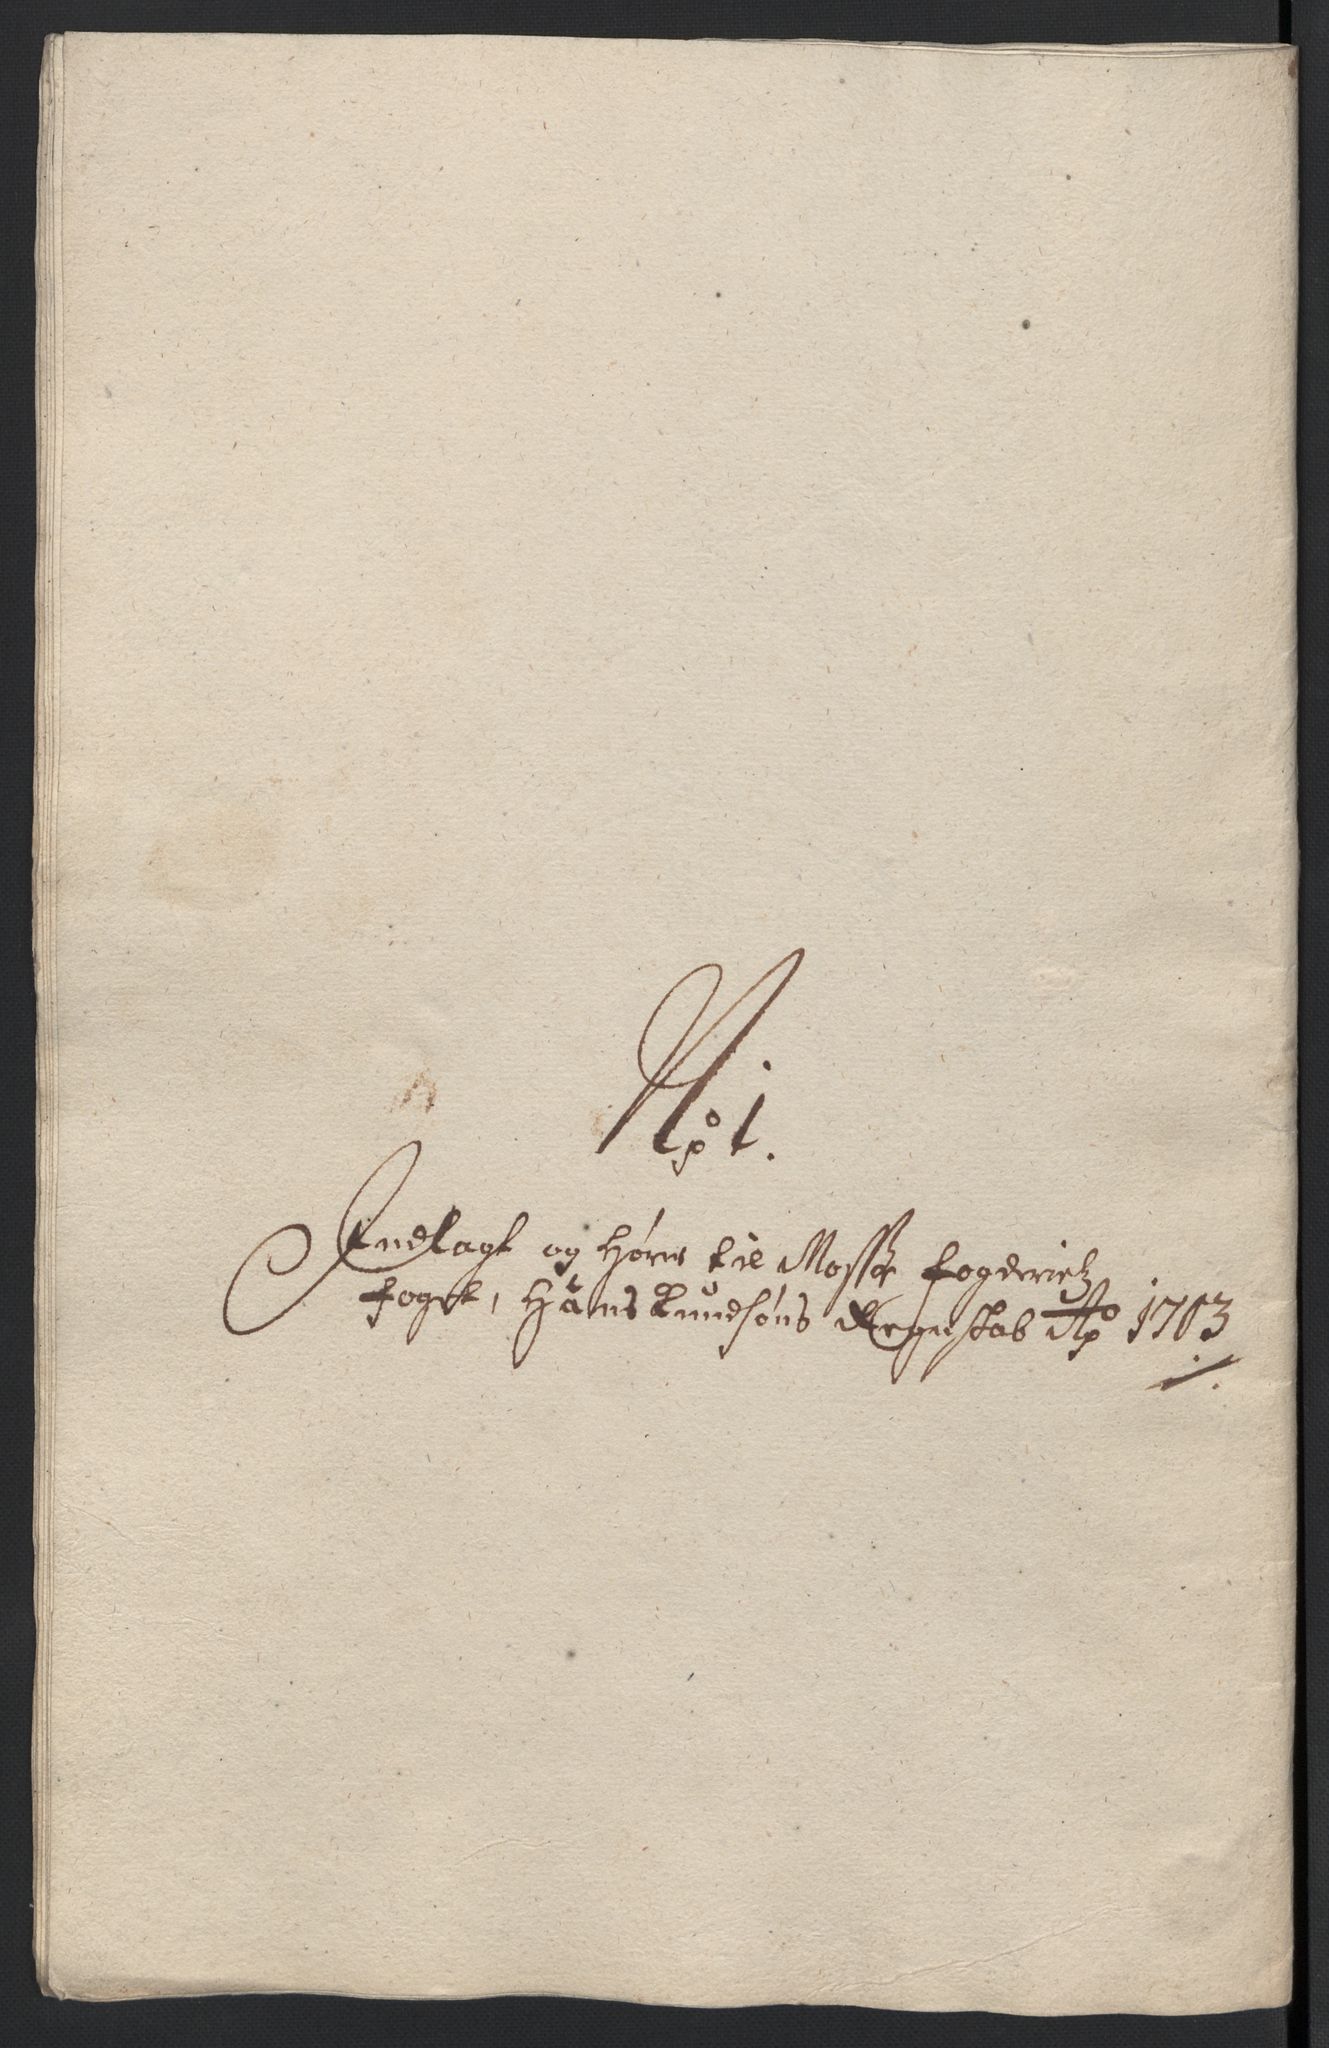 No 1.
Indlagt og hører til Mosse fogderietz
foget, Hans Knudsøns Regnskab Ao 1703